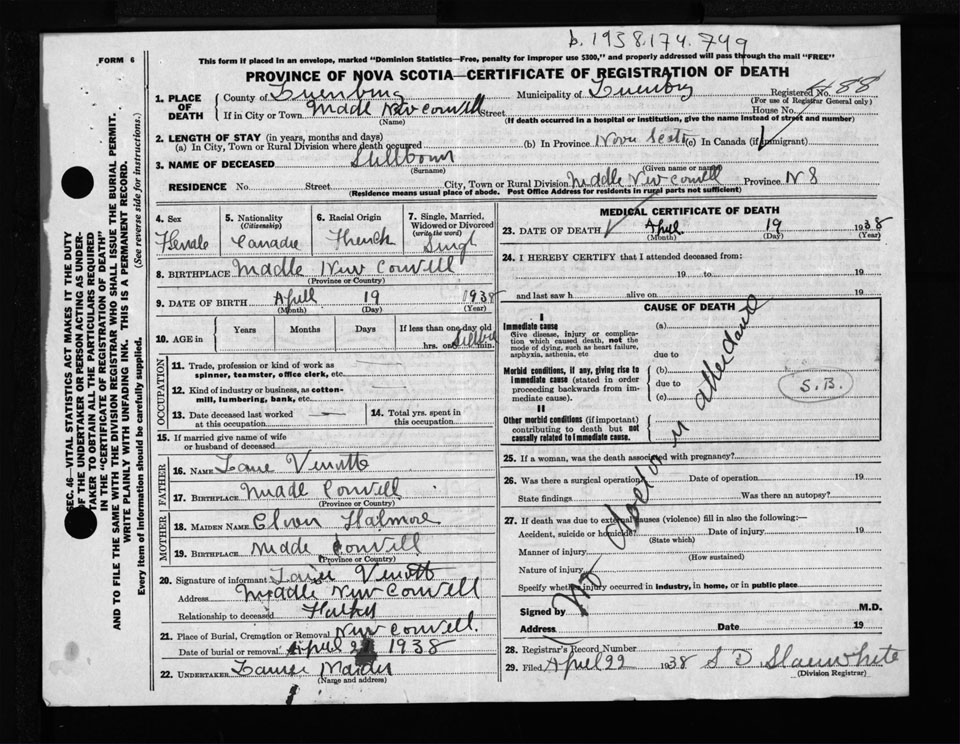 b. 1938.174.749
FORM 6
This form if placed in an envelope, marked "Dominion Statistics—Free, penalty for improper use $300," and properly addressed will pass through the mail "FREE"
PROVINCE OF NOVA SCOTIA—CERTIFICATE OF REGISTRATION OF DEATH
SEC. 46—VITAL STATISTICS ACT MAKES IT THE DUTY
OF THE UNDERTAKER OR PERSON ACTING AS UNDER-
TAKER TO OBTAIN ALL THE PARTICULARS REQUIRED
IN THE "CERTIFICATE OF REGISTRATION OF DEATH"
AND TO FILE THE SAME WITH THE DIVISION REGISTRAR WHO SHALL ISSUE THE BURIAL PERMIT.
WRITE PLAINLY WITH UNFADING INK. THIS IS A PERMANENT RECORD.
Every item of Information should be carefully supplied. (See reverse side for instructions.)
1. PLACE OF DEATH County of Lunenburg Municipality of Registered No. 488
(For use of Registrar General only)
If in City or Town Middl New Cornwell Street House No.
(Name) (If death occurred in a hospital or institution, give the name instead of street and number)
2. LENGTH OF STAY (in years, months and days)
(a) In City, Town or Rural Division where death occurred (b) In Province Nova (c) In Canada (if immigrant)
3. NAME OF DECEASED Stillborn
(Surname) (Given name or names)
RESIDENCE No. Street City, Town or Rural Division Middle New Cornwell Province N S
(Residence means usual place of abode. Post Office Address for residents in rural parts not sufficient)
4. Sex 5. Nationality (Citizenship) 6. Racial Origin 7. Single, Married, Widowed or Divorced (write the word)
Female Canadie French Singl
8. BIRTHPLACE Middle New Cornwell
(Province or Country)
9. DATE OF BIRTH Aprill 19 1938
(Month) (Day) (Year)
10. AGE in Years Months Days If less than one day old
hrs. or min.
OCCUPATION
11. Trade, profession or kind of work as spinner, teamster, office clerk, etc.
12. Kind of industry or business, as cotton-mill, lumbering, bank, etc.
13. Date deceased last worked at this occupation 14. Total yrs. spent in this occupation
15. If married give name of wife or husband of deceased
FATHER
16. NAME
17. BIRTHPLACE Cornwell
(Province or Country)
MOTHER
18. MAIDEN NAME
19. BIRTHPLACE Cornwell
(Province or Country)
20. Signature of informant
Address Middle New Cornwell
Relationship to deceased Father
21. Place of Burial, Cremation or Removal New Cornwell.
Date of burial or removal April 1938
22. UNDERTAKER
(Name and address)
MEDICAL CERTIFICATE OF DEATH
23. DATE OF DEATH April 19 1938
(Month) (Day) (Year)
24. I HEREBY CERTIFY that I attended deceased from:
19 to 19
and last saw h alive on 19
CAUSE OF DEATH
I
Immediate cause (a)
Give disease, injury or complication which caused death, not the mode of dying, such as heart failure, asphyxia, asthenia, etc
due to
Morbid conditions, if any, giving rise to immediate cause (stated in order proceeding backwards from immediate cause). (b)
due to
(c)
S.B.
II
Other morbid conditions (if important) contributing to death but not causally related to immediate cause.
No Doctor in attendance
25. If a woman, was the death associated with pregnancy?
26. Was there a surgical operation Date of operation 19
State findings Was there an autopsy?
27. If death was due to external causes (violence) fill in also the following—
Accident, suicide or homicide? Date of injury 19
(State which)
Manner of injury
(How sustained)
Nature of injury
Specify whether injury occurred in industry, in home, or in public place
Signed by M.D.
Address Date 19
28. Registrar's Record Number
29. Filed April 22 1938 S D Slauwhite
(Division Registrar)